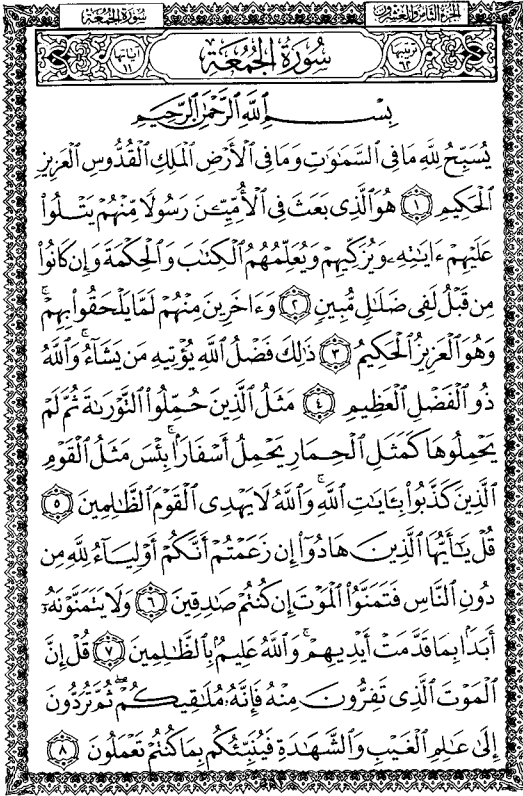 الجزء الثامن والعشرون
سُورَةُ الجُمُعَة
ترتيبها ٦٢
سُورَةُ الجُمُعَةِ
آياتها ١١
بِسْمِ اللَّهِ الرَّحْمَٰنِ الرَّحِيمِ
يُسَبِّحُ لِلَّهِ مَا فِي السَّمَٰوَٰتِ وَمَا فِي الْأَرْضِ الْمَلِكِ الْقُدُّوسِ الْعَزِيزِ
الْحَكِيمِ ١ هُوَ الَّذِي بَعَثَ فِي الْأُمِّيِّـۧنَ رَسُولًا مِّنْهُمْ يَتْلُوا۟
عَلَيْهِمْ ءَايَٰتِهِۦ وَيُزَكِّيهِمْ وَيُعَلِّمُهُمُ الْكِتَٰبَ وَالْحِكْمَةَ وَإِن كَانُوا۟
مِن قَبْلُ لَفِي ضَلَٰلٍ مُّبِينٍ ٢ وَءَاخَرِينَ مِنْهُمْ لَمَّا يَلْحَقُوا۟ بِهِمْ ۚ
وَهُوَ الْعَزِيزُ الْحَكِيمُ ٣ ذَٰلِكَ فَضْلُ اللَّهِ يُؤْتِيهِ مَن يَشَآءُ ۚ وَاللَّهُ
ذُو الْفَضْلِ الْعَظِيمِ ٤ مَثَلُ الَّذِينَ حُمِّلُوا۟ التَّوْرَىٰةَ ثُمَّ لَمْ
يَحْمِلُوهَا كَمَثَلِ الْحِمَارِ يَحْمِلُ أَسْفَارًۢا ۚ بِئْسَ مَثَلُ الْقَوْمِ
الَّذِينَ كَذَّبُوا۟ بِـَٔايَٰتِ اللَّهِ ۚ وَاللَّهُ لَا يَهْدِي الْقَوْمَ الظَّٰلِمِينَ ٥
قُلْ يَٰٓأَيُّهَا الَّذِينَ هَادُوٓا۟ إِن زَعَمْتُمْ أَنَّكُمْ أَوْلِيَآءُ لِلَّهِ مِن
دُونِ النَّاسِ فَتَمَنَّوُا۟ الْمَوْتَ إِن كُنتُمْ صَٰدِقِينَ ٦ وَلَا يَتَمَنَّوْنَهُۥٓ
أَبَدًۢا بِمَا قَدَّمَتْ أَيْدِيهِمْ ۚ وَاللَّهُ عَلِيمٌۢ بِالظَّٰلِمِينَ ٧ قُلْ إِنَّ
الْمَوْتَ الَّذِي تَفِرُّونَ مِنْهُ فَإِنَّهُۥ مُلَٰقِيكُمْ ۖ ثُمَّ تُرَدُّونَ
إِلَىٰ عَٰلِمِ الْغَيْبِ وَالشَّهَٰدَةِ فَيُنَبِّئُكُم بِمَا كُنتُمْ تَعْمَلُونَ ٨